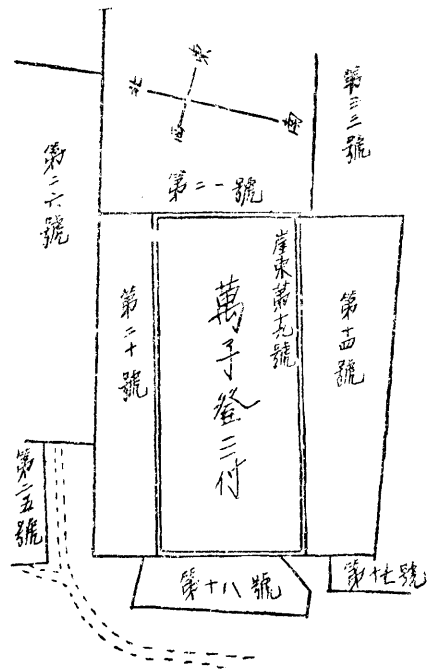 東
北
南
西
第三三號
第二六號
第二一號
崖東第十九號
萬子登三付
第二十號
第十四號
第二五號
第十八號
第十七號